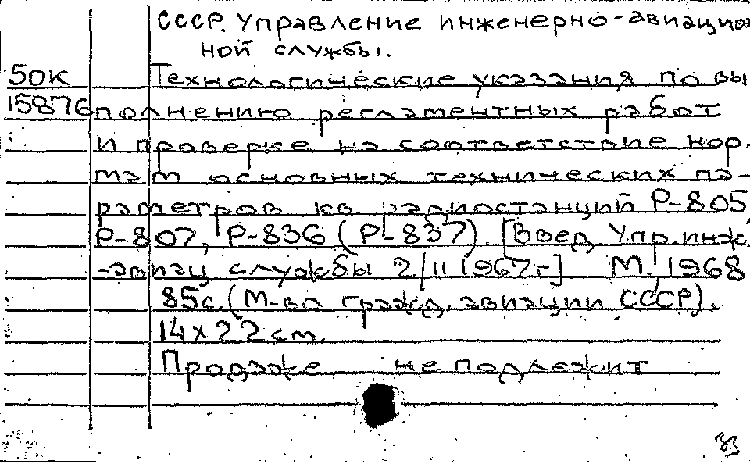 СССР. Управление инженерно-авиацион
ной службы.
50к Технологические указания по вы
15876 полнению регламентных работ
и проверке на соответствие нор.
мам основных технических па-
раметров кв радиостанций Р-805,
Р-807, Р-836 (Р-837). [Введ. Упр. инж.
-авиац службы 2/II 1967г] М., 1968
85с. (М-во гражд. авиации СССР).
14х22см.
Продаже не подлежит